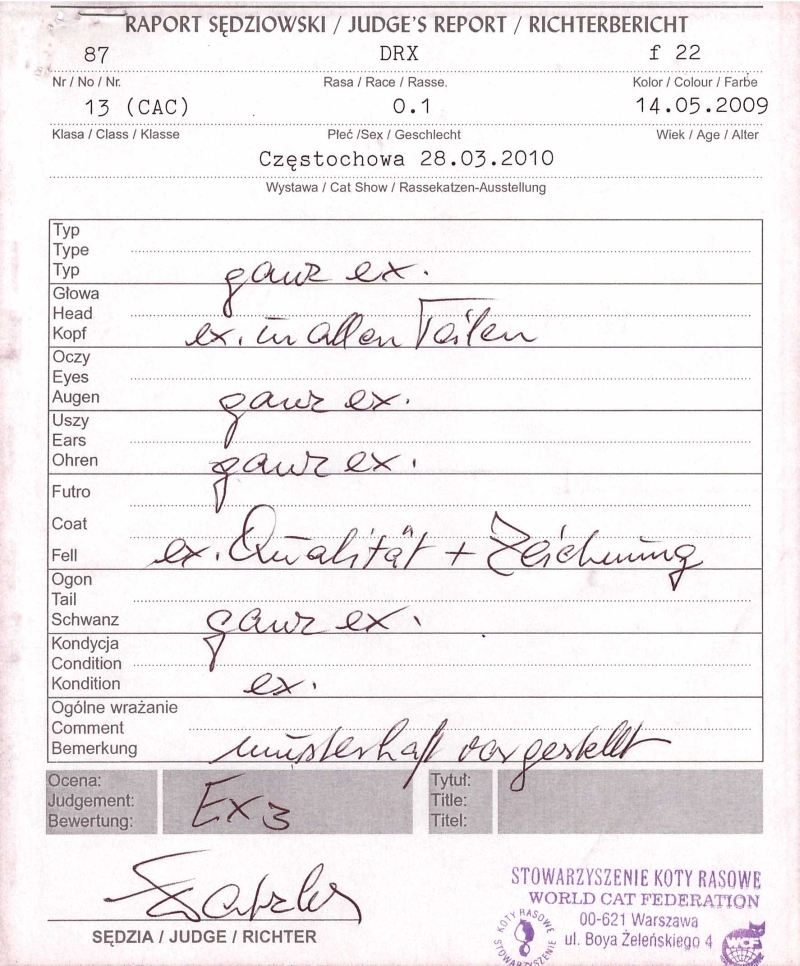 RAPORT SĘDZIOWSKI / JUDGE'S REPORT / RICHTERBERICHT
87 DRX f 22
Nr / No / Nr. Rasa / Race / Rasse. Kolor / Colour / Farbe
13 (CAC) 0.1 14.05.2009
Klasa / Class / Klasse Płeć /Sex / Geschlecht Wiek / Age / Alter
Częstochowa 28.03.2010
Wystawa / Cat Show / Rassekatzen-Ausstellung
Typ
Type
Typ ganz ex.
Głowa
Head
Kopf ex. in allen Teilen
Oczy
Eyes
Augen ganz ex.
Uszy
Ears
Ohren ganz ex.
Futro
Coat
Fell ex. Qualität + Zeichnung
Ogon
Tail
Schwanz ganz ex.
Kondycja
Condition
Kondition ex.
Ogólne wrażanie
Comment
Bemerkung musterhaft vorgestellt
Ocena: Tytuł:
Judgement: Ex 3 Title:
Bewertung: Titel:
SĘDZIA / JUDGE / RICHTER
STOWARZYSZENIE KOTY RASOWE
WORLD CAT FEDERATION
00-621 Warszawa
ul. Boya Żeleńskiego 4
KOTY RASOWE
STOWARZYSZENIE